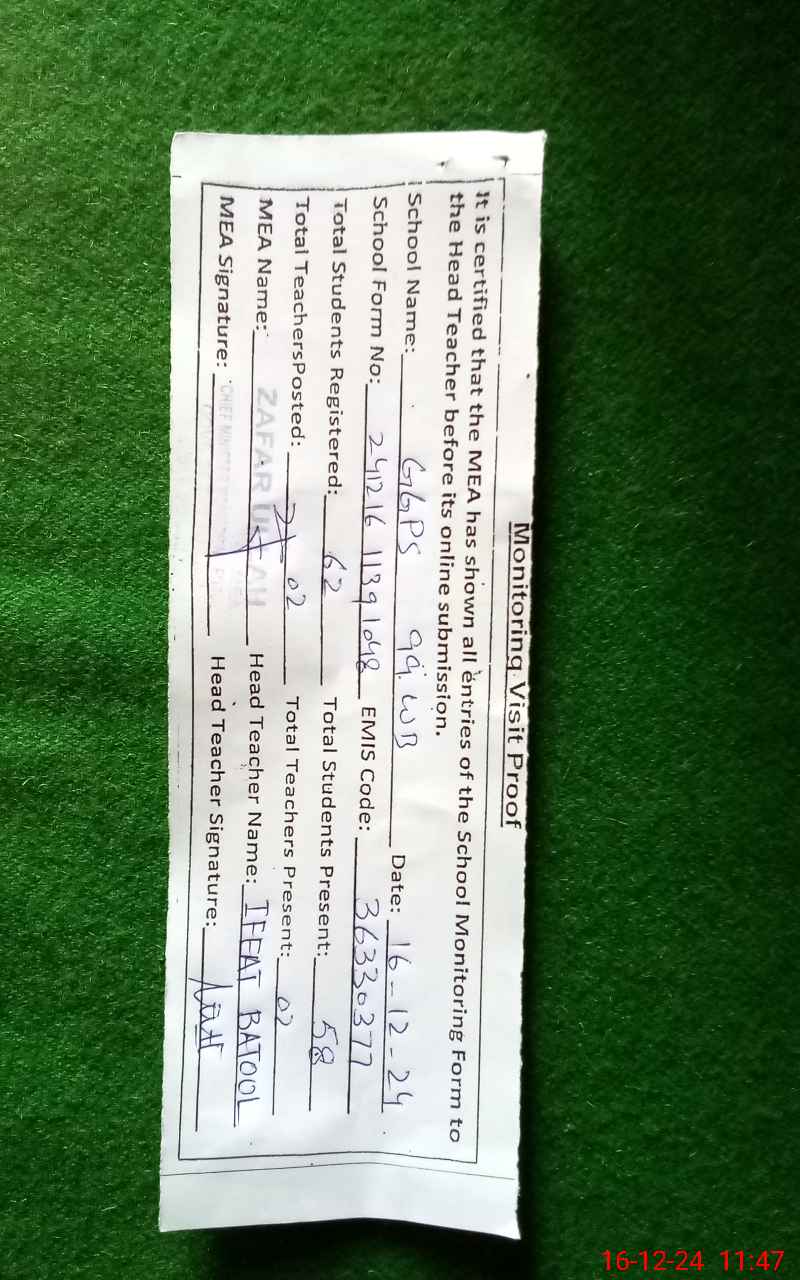 Monitoring Visit Proof
It is certified that the MEA has shown all entries of the School Monitoring Form to
the Head Teacher before its online submission.
School Name: GGPS 99 WB Date: 16-12-24
School Form No: 241216 11391048 EMIS Code: 36330377
Total Students Registered: 62 Total Students Present: 58
Total TeachersPosted: 02 Total Teachers Present: 02
MEA Name: ZAFAR ULLAH Head Teacher Name: IFFAT BATOOL
MEA Signature: Head Teacher Signature:
16-12-24 11:47